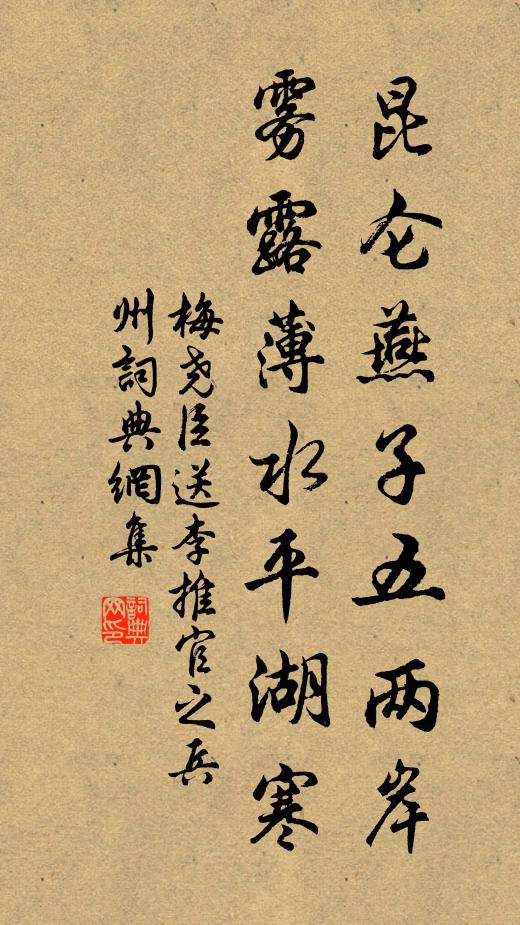 昆仑燕子五两岸
雾露薄水平湖寒
梅尧臣送李推官之兵
州詞典網集
詞典
网印